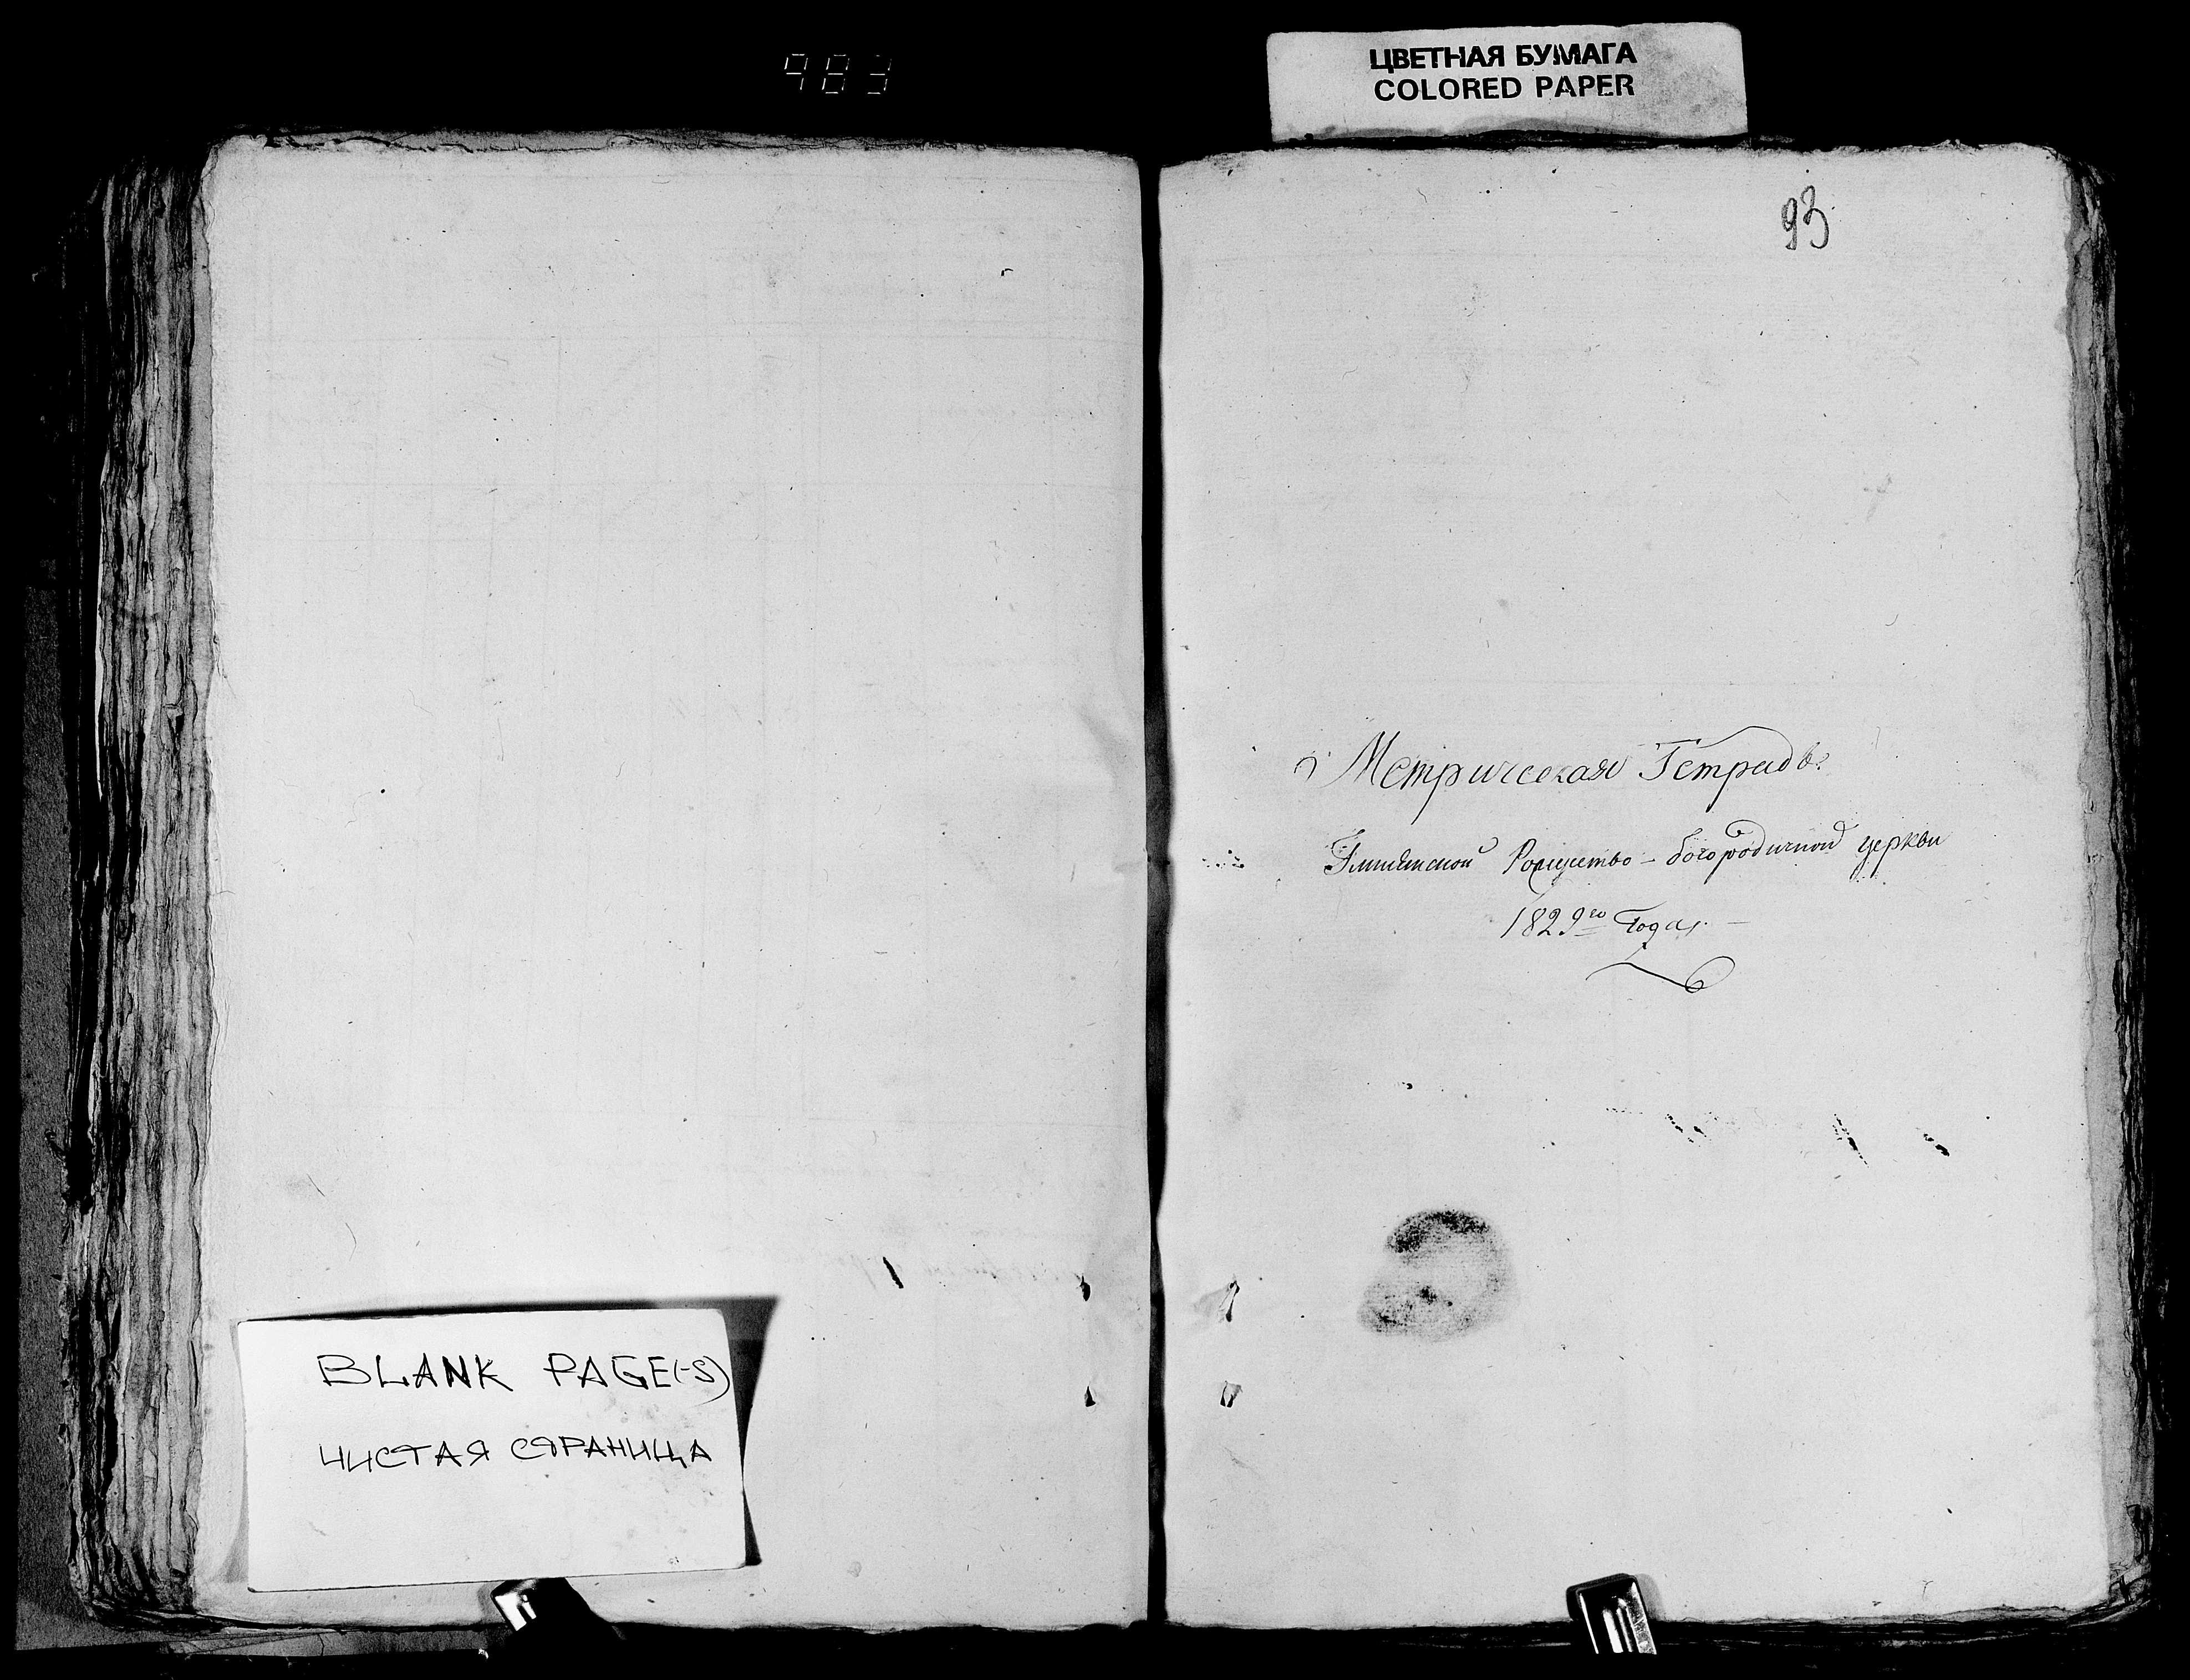 983
ЦВЕТНАЯ БУМАГА
COLORED PAPER
93
Метрическая Тетрадь
Рождество - богородичной церкви
1829го Года
BLANK PAGE(-S)
ЧИСТАЯ СТРАНИЦА